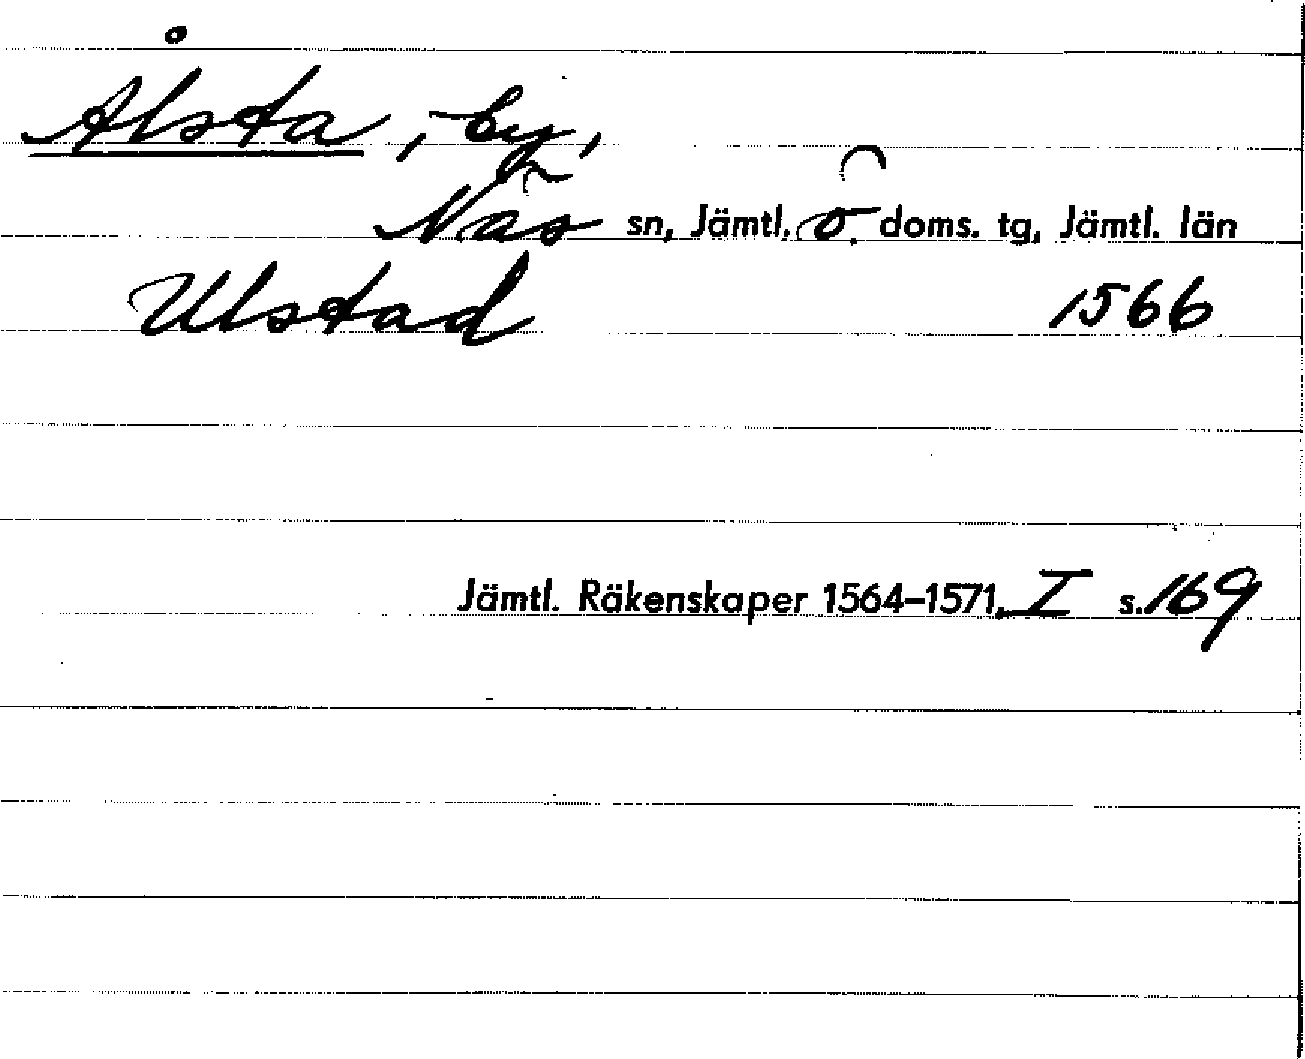 Ålsta, by,
Näs sn, Jämtl. ö. doms. tg, Jämtl. län
Ulstad 1566
Jämtl. Räkenskaper 1564–1571, I s. 169